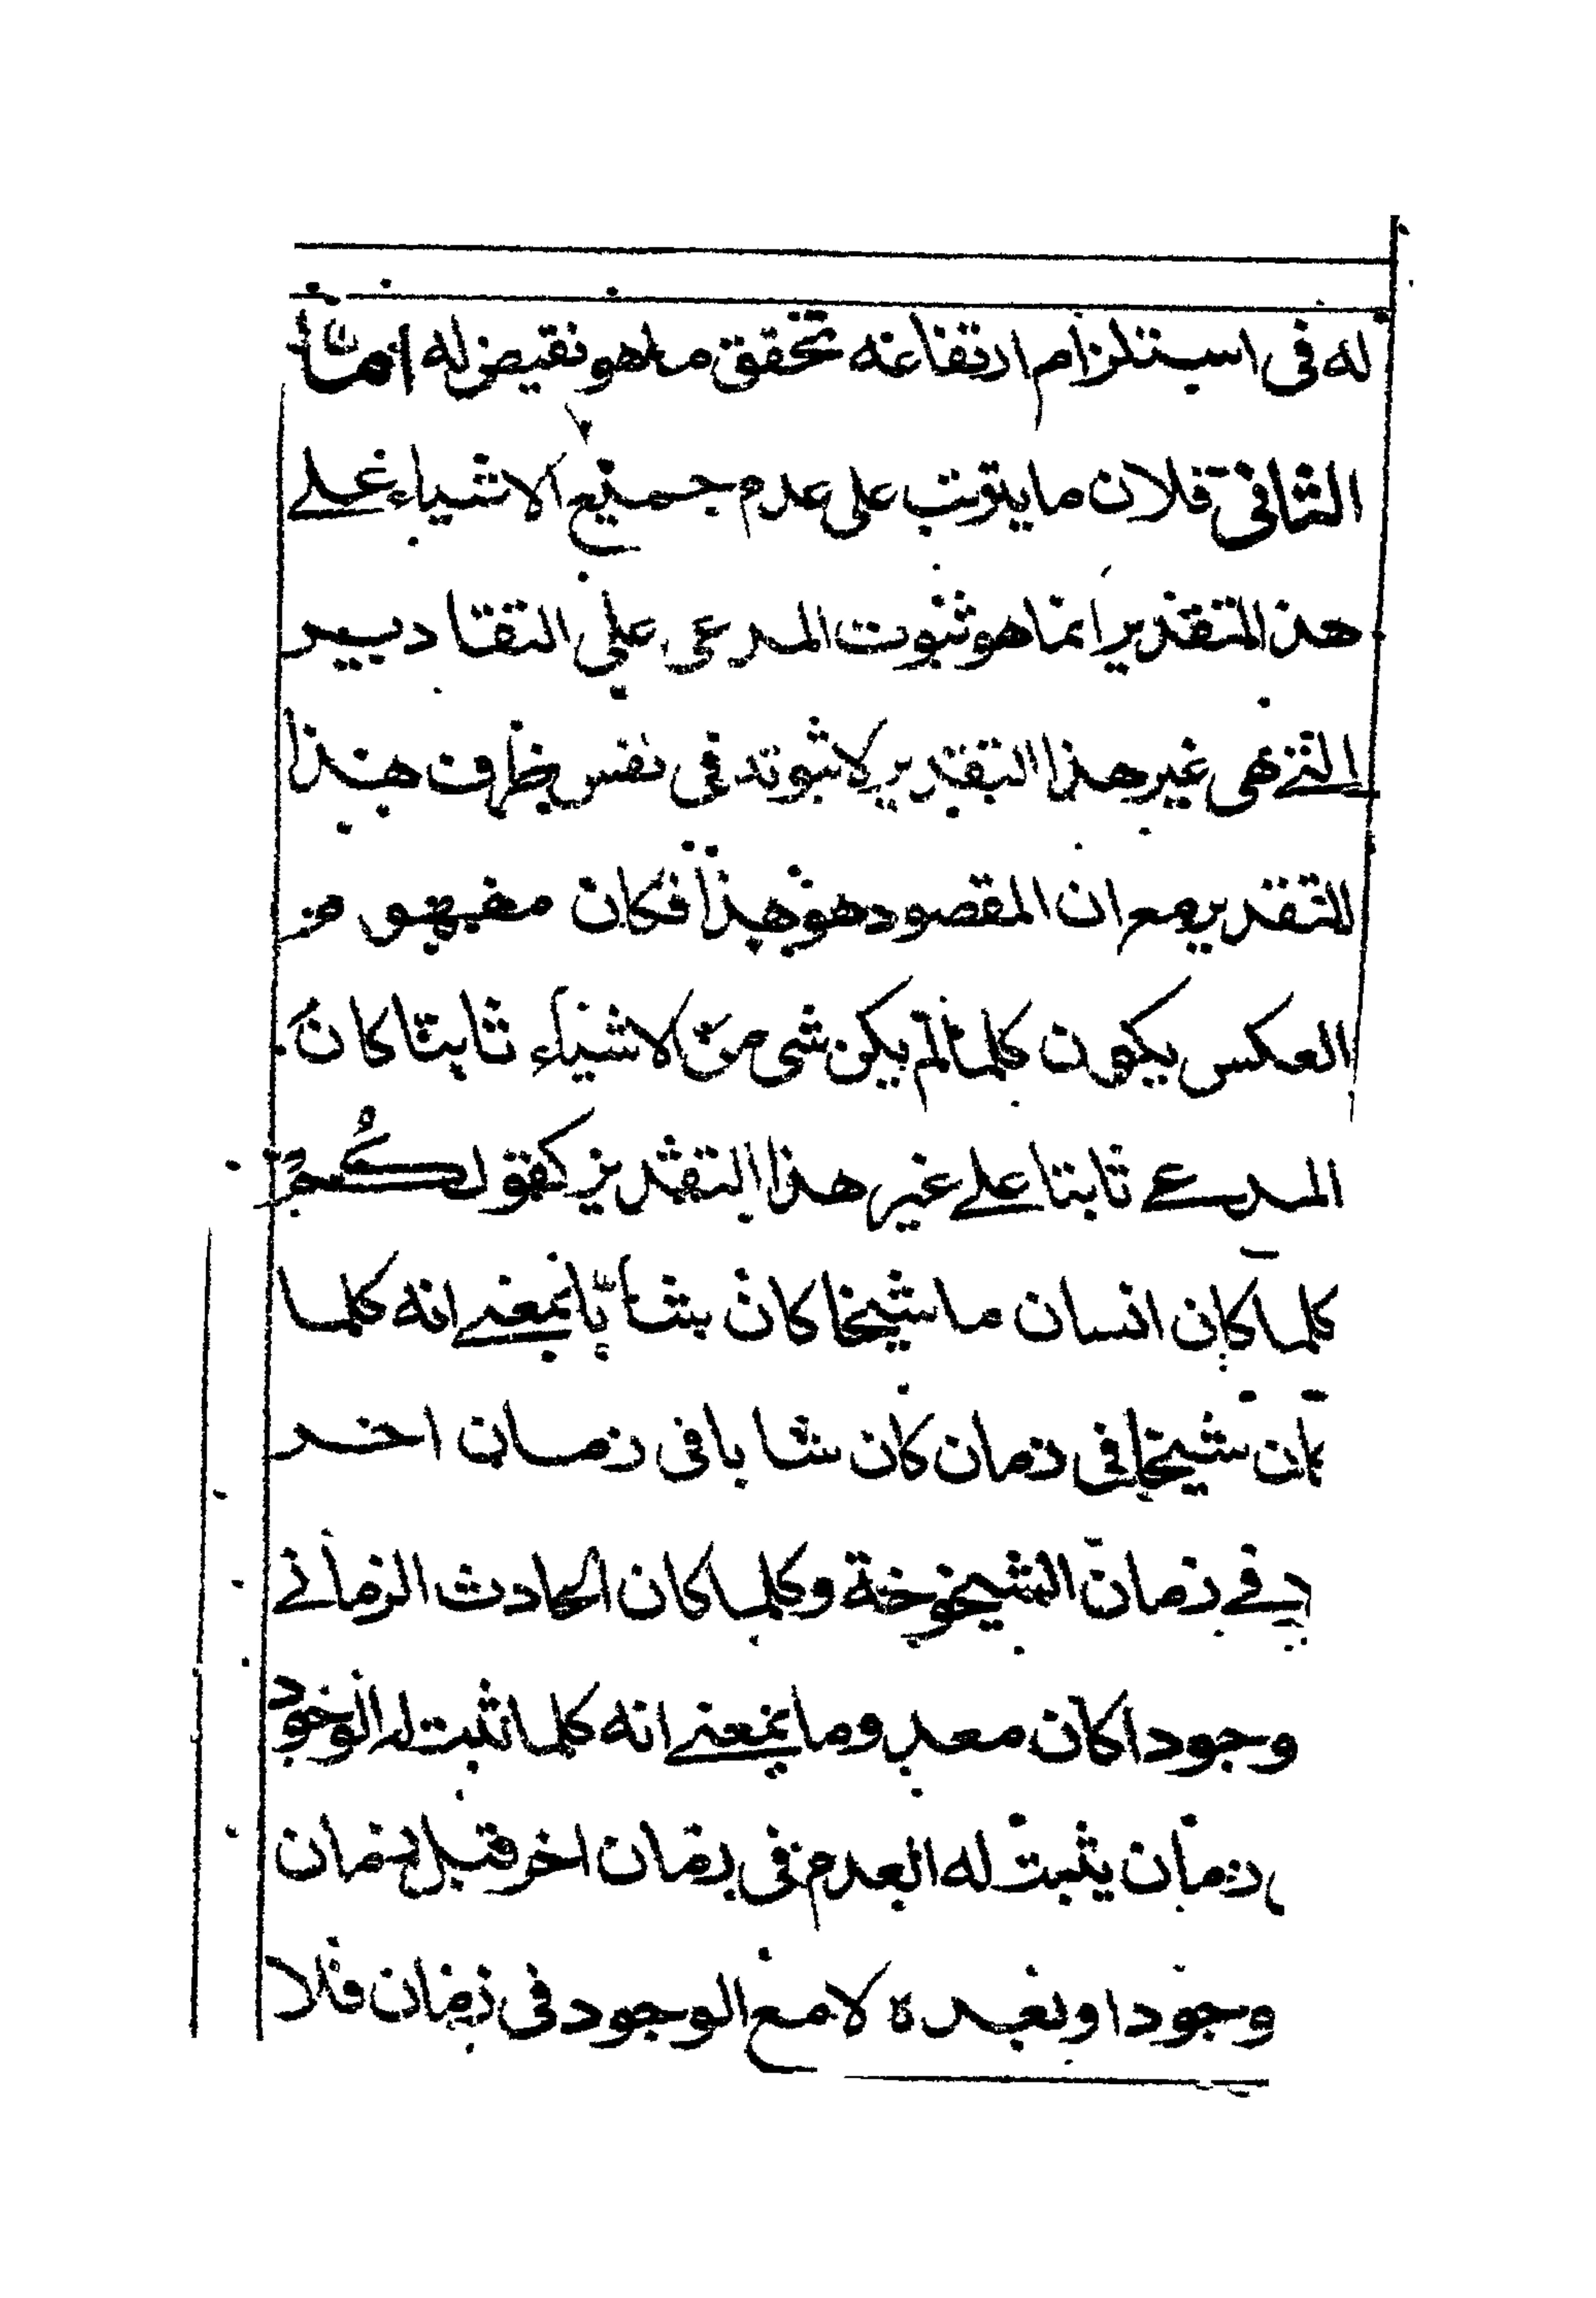 له فى استلزام ارتفاعه تحقق ما هو نقيض له اما
الثانى فلان ما يترتب على عدم جميع الاشياء على
هذا التقدير انما هو ثبوت المدعى على التقادير
التى هى غير هذا التقدير لا ثبوته فى نفس ظرف هذا
التقدير مع ان المقصود هو هذا فكان مفهوم
العكس يكون كلما لم يكن شى من الاشياء ثابتا كان
المدعى ثابتا على غير هذا التقدير كقولكم
كلما كان انسان ما شيخا كان شابا بمعنى انه كلما
كان شيخا فى زمان كان شابا فى زمان اخر
فى زمان الشيخوخة وكلما كان الحادث الزمانى
وجودا كان معدوما بمعنى انه كلما ثبت له الوجود
زمان يثبت له العدم فى زمان اخر قبل زمان
وجودا وبعده لا مع الوجود فى زمان فلا